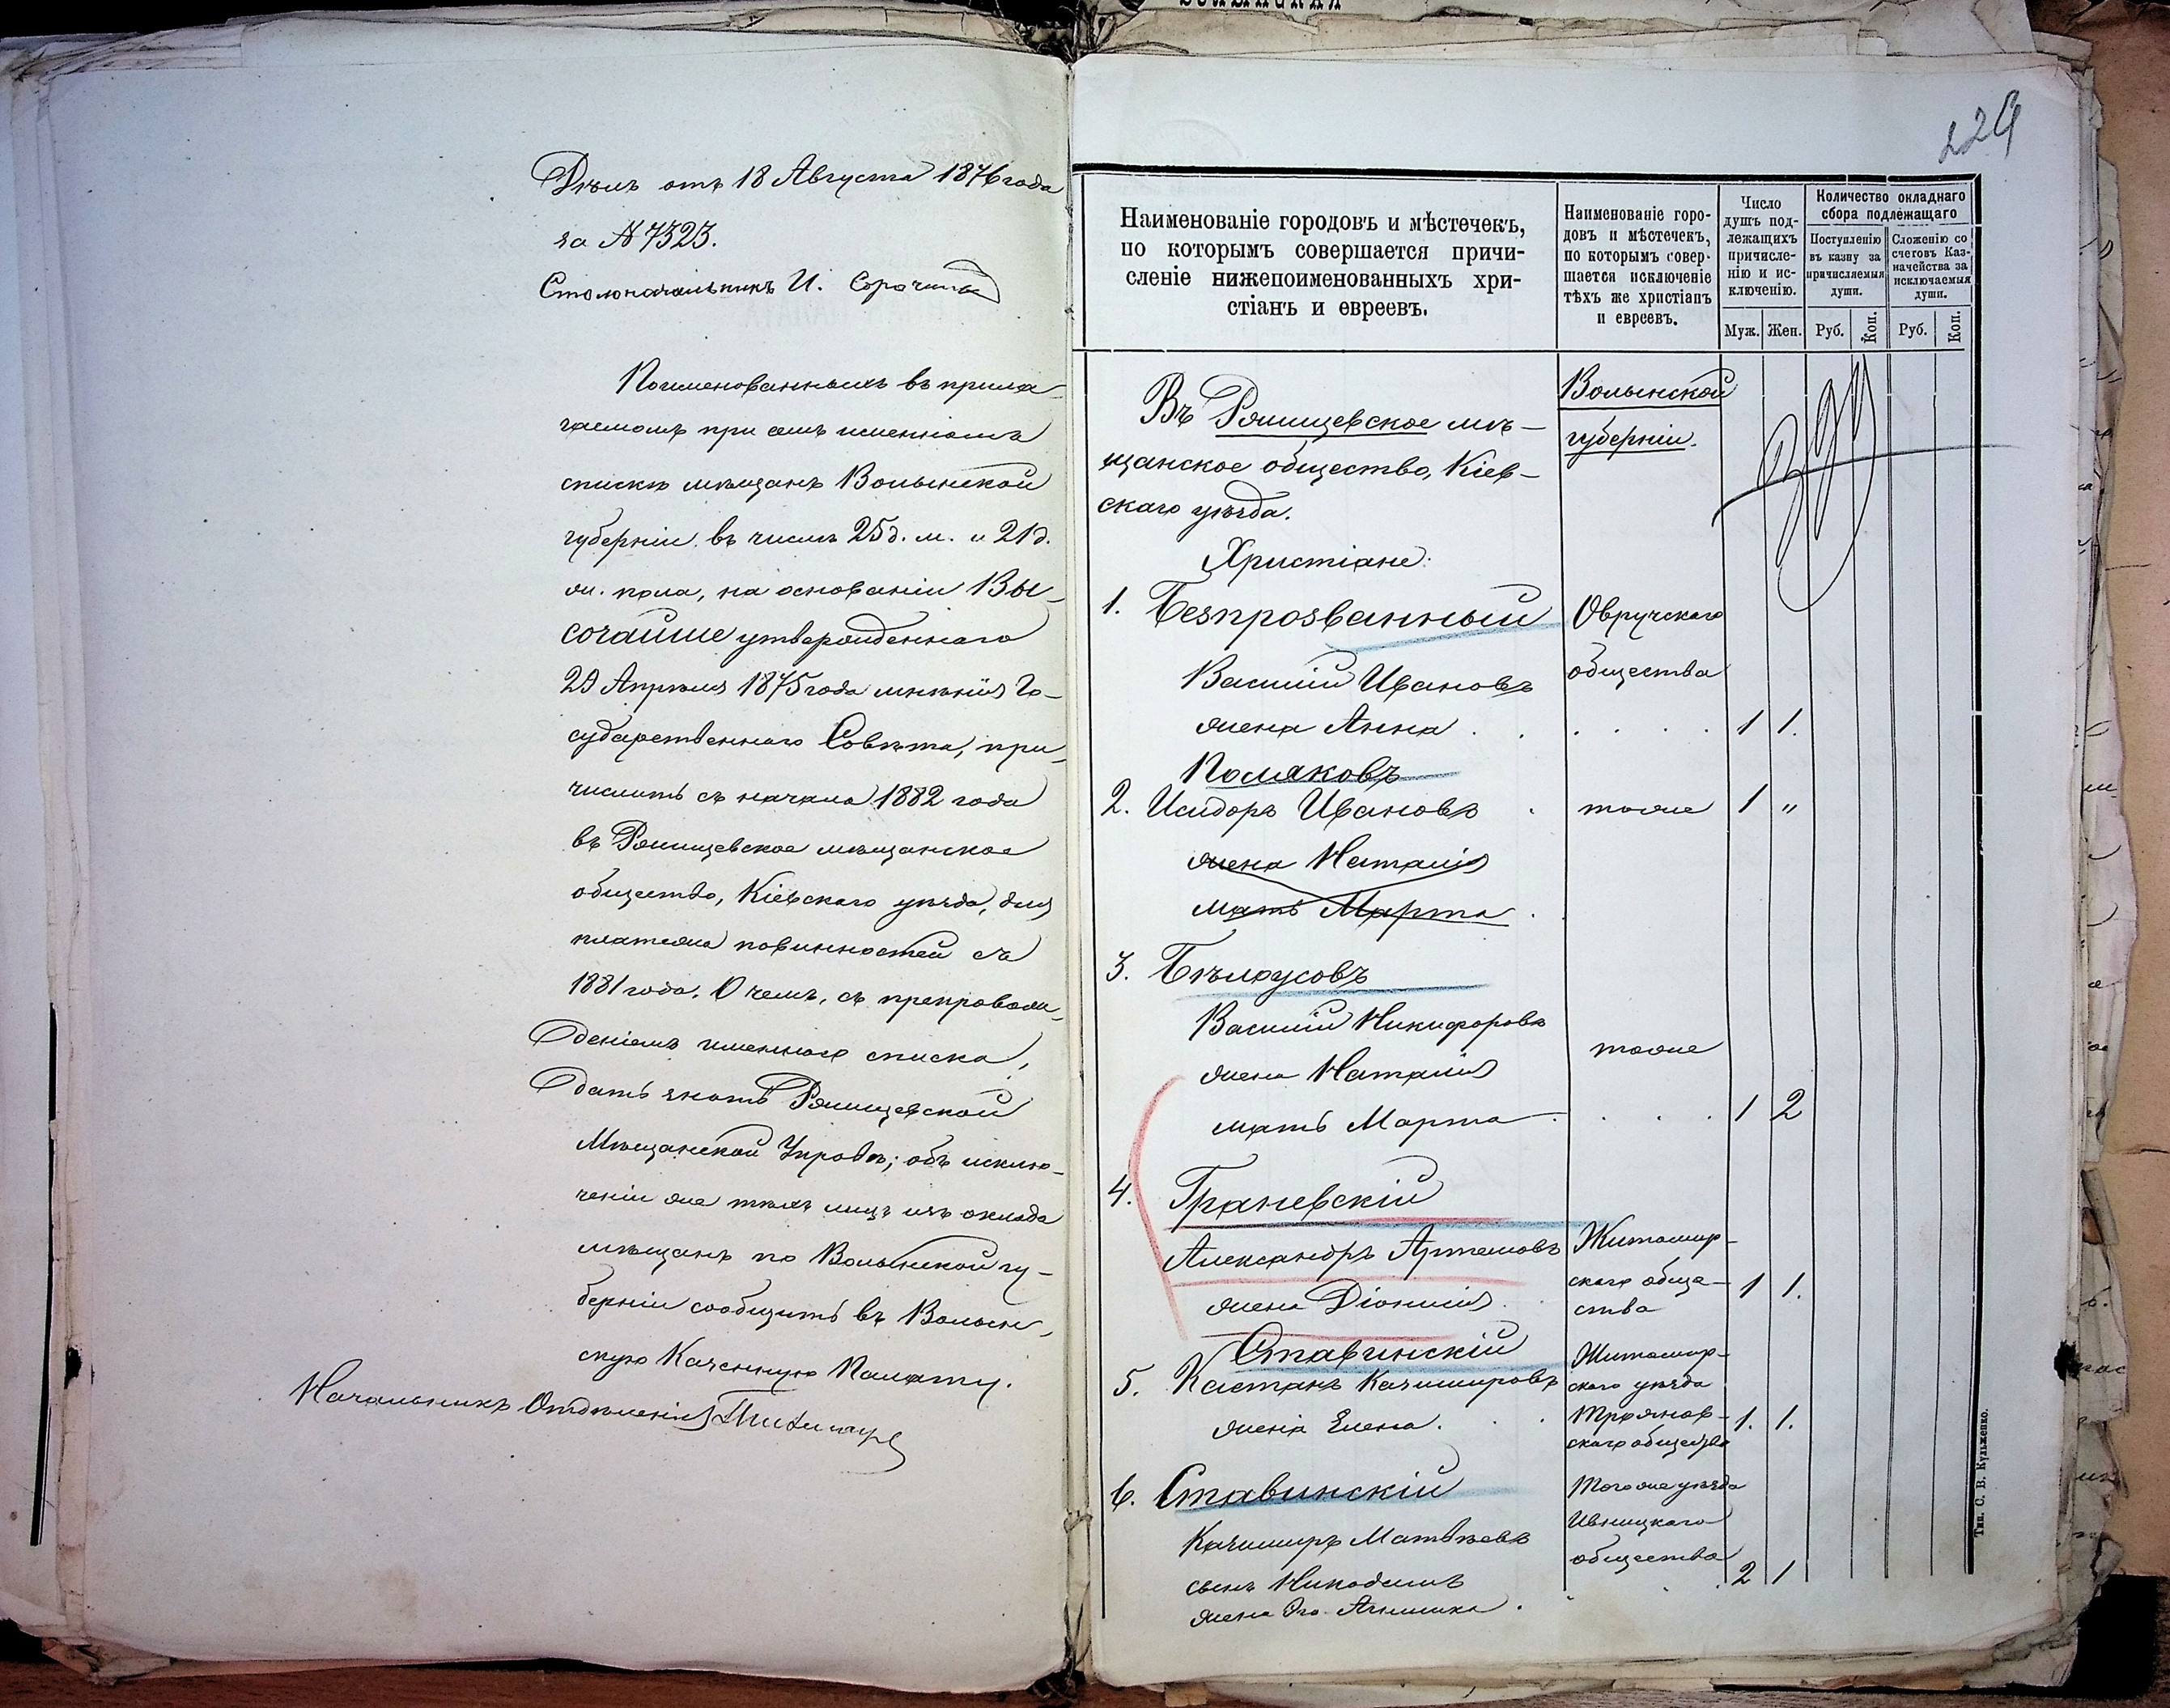 Дѣлъ отъ 18 Августа 1876 года
за № 7323.
Столоначальникъ И.
Поименованныхъ въ прила-
гаемомъ при семъ именномъ
спискѣ мѣщанъ Волынской
губерніи въ числѣ 25 д. м. и 21 д.
ж. пола, на основаніи Вы-
сочайше утвержденнаго
29 Апрѣля 1875 года мнѣнія Го-
сударственнаго Совѣта, при-
числить съ начала 1882 года
въ Ржищевское мѣщанское
общество, Кіевскаго уѣзда, для
платежа повинностей съ
1881 года. О чемъ, съ препровож-
деніемъ именного списка,
дать знать Ржищевской
Мѣщанской Управѣ; объ исклю-
ченіи же тѣхъ лицъ изъ оклада
мѣщанъ по Волынской гу-
берніи сообщить въ Волын-
скую Казенную Палату.
Начальникъ Отдѣленія
229
Наименованіе городовъ и мѣстечекъ,
по которымъ совершается причи-
сленіе нижепоименованныхъ хри-
стіанъ и евреевъ.
Наименованіе горо-
довъ и мѣстечекъ,
по которымъ совер-
шается исключеніе
тѣхъ же христіанъ
и евреевъ.
Число
душъ под-
лежащихъ
причисле-
нію и ис-
ключенію.
Муж. Жен.
Количество окладнаго
сбора подлежащаго
Поступленію
въ казну за
причисляемыя
души.
Руб. Коп.
Сложенію со
счетовъ Каз-
начейства за
исключаемыя
души.
Руб. Коп.
Въ Ржищевское мѣ-
щанское общество, Кіев-
скаго уѣзда.
Волынской
губерніи.
Христіане:
1. Безпрозванный Овручскаго
Василій Ивановъ общества
жена Анна . . . . . . 1 1.
Поляковъ
2. Исидоръ Ивановъ . тоже 1 "
жена Наталія
мать Марта .
3. Бѣлоусовъ
Василій Никифоровъ
жена Наталія тоже
мать Марта . . . . 1 2
4. Граневскій
Александръ Артемовъ Житомир-
жена Діонисія . скаго обще- 1 1.
ства
Ставинскій Житомир-
5. Каетанъ Казимировъ скаго уѣзда
жена Елена . . . Троянов- 1. 1.
скаго общества
6. Ставинскій Того же уѣзда
Казимиръ Матвѣевъ Ивницкаго
сынъ Никодимъ общества 2 1
жена Его .
Тип. С. В. Кульженко.